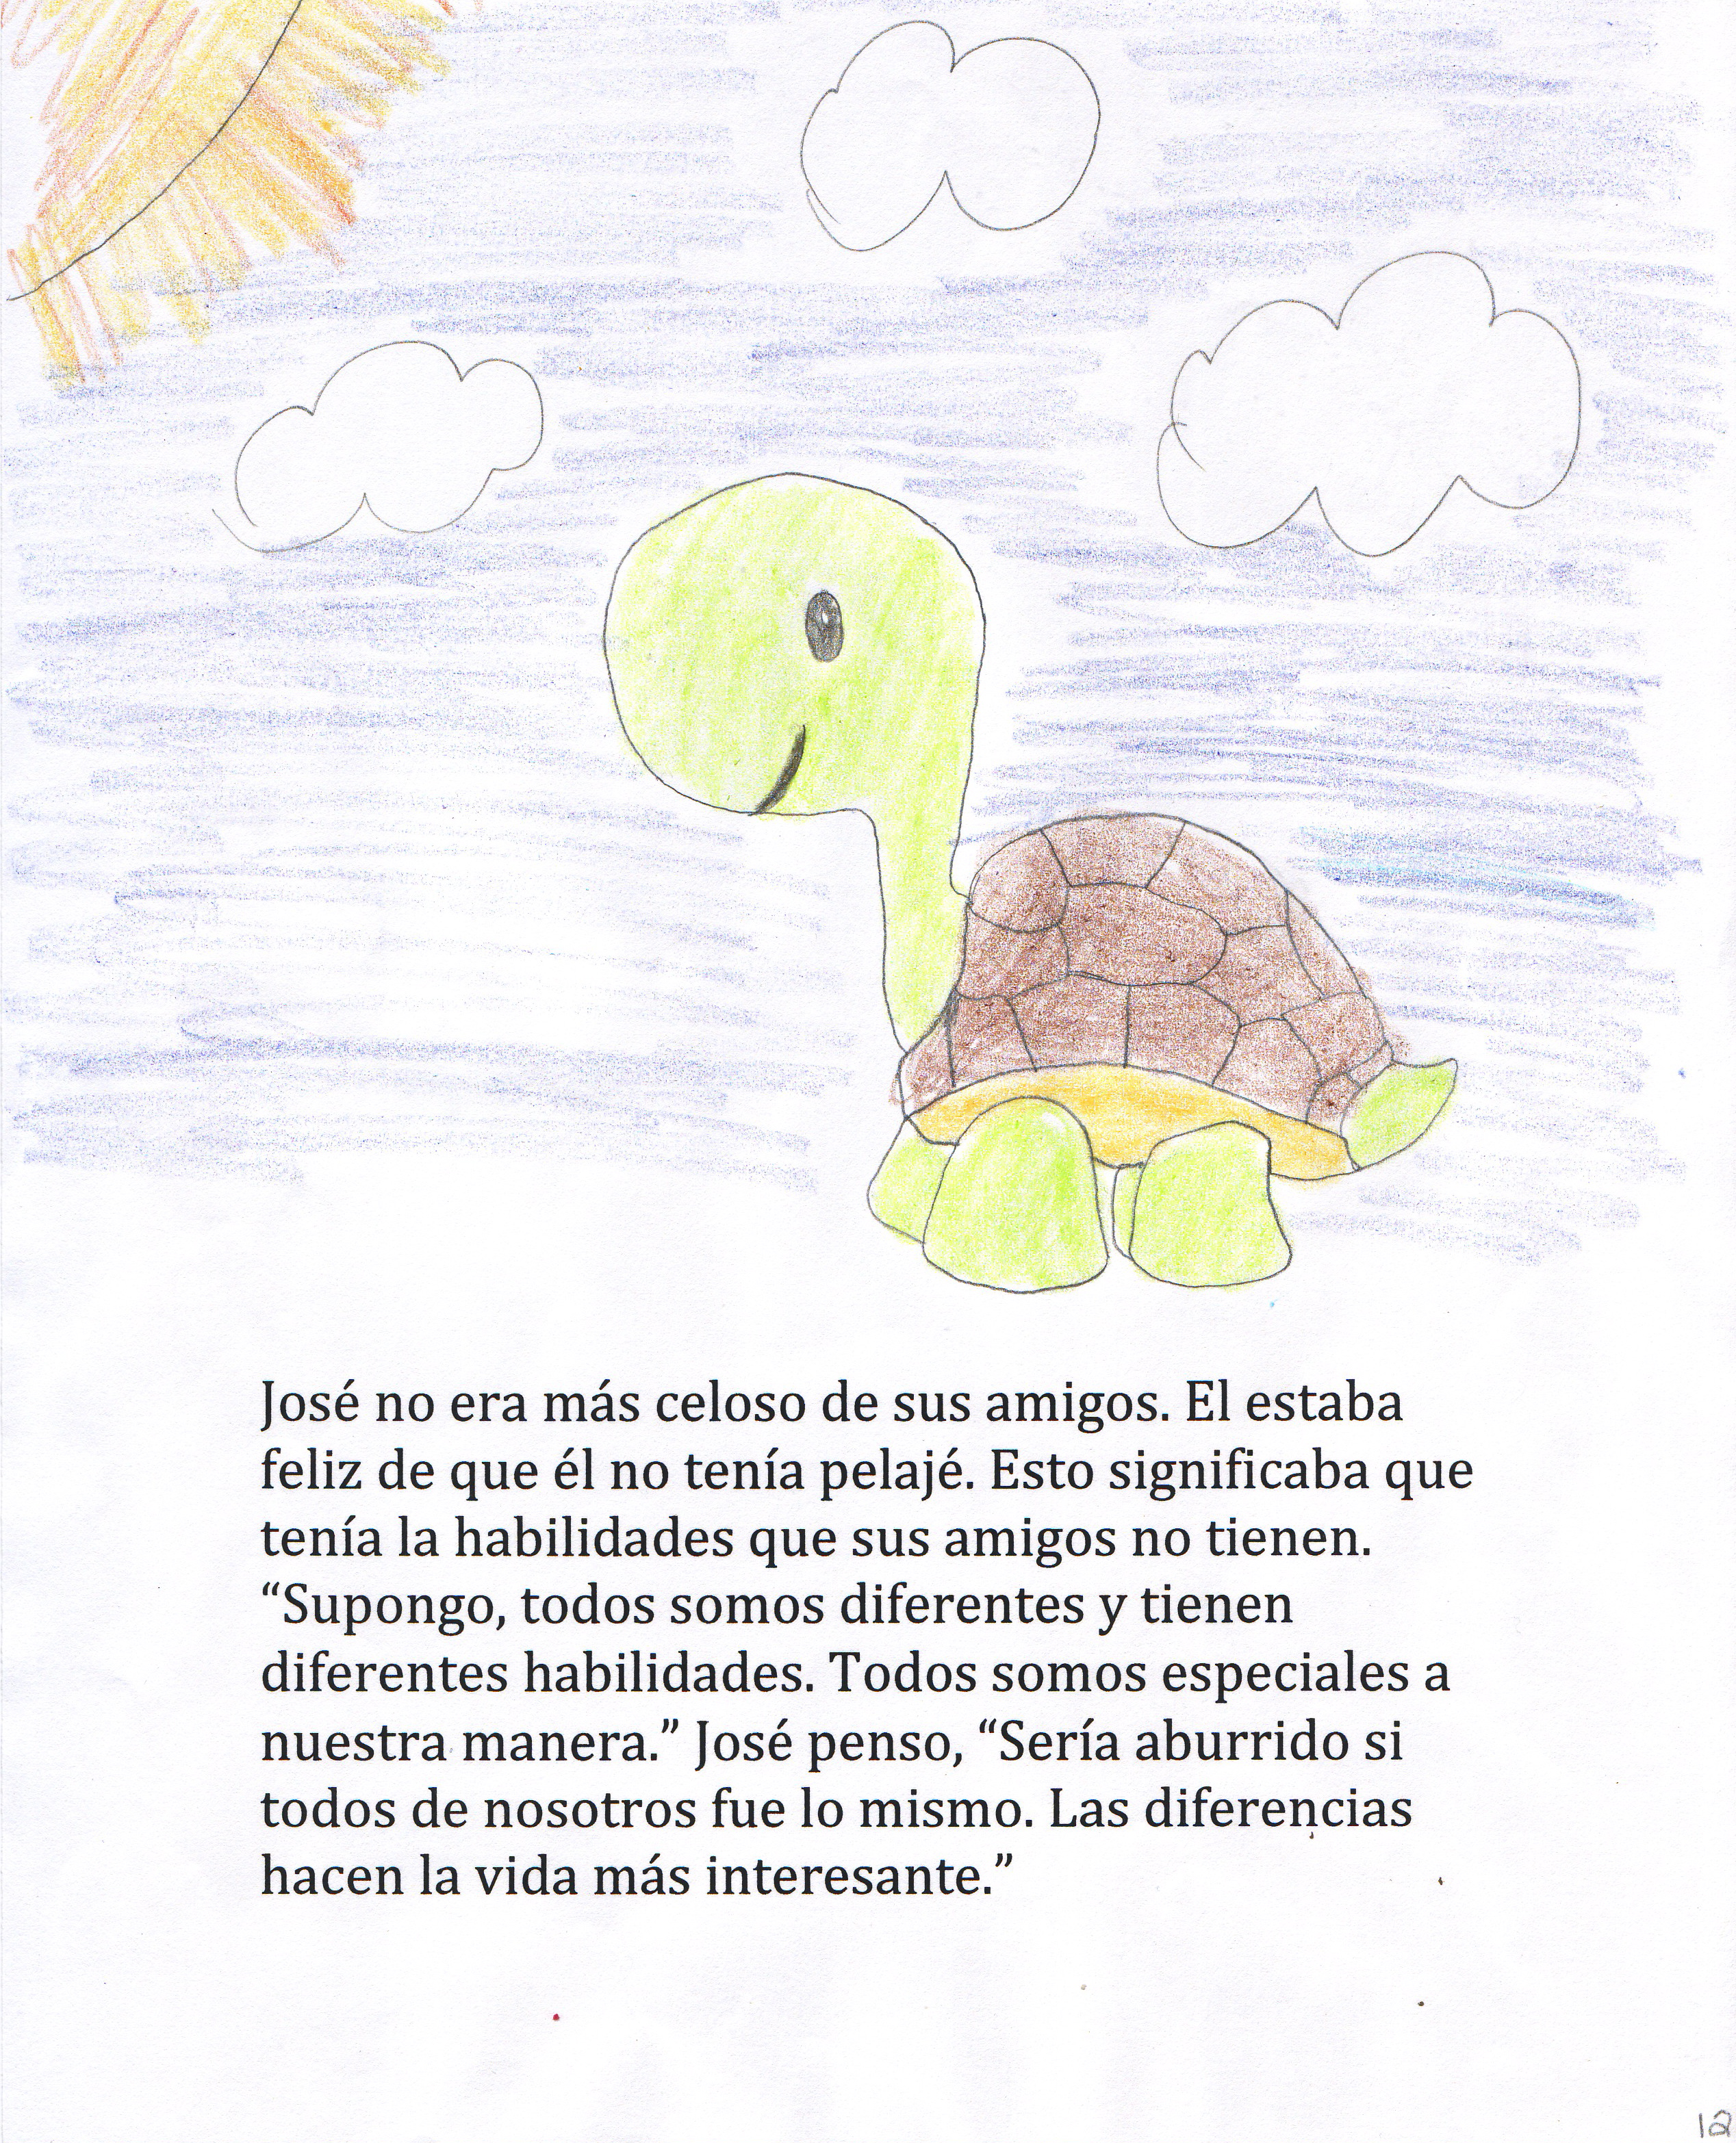 José no era más celoso de sus amigos. El estaba
feliz de que él no tenía pelajé. Esto significaba que
tenía la habilidades que sus amigos no tienen.
“Supongo, todos somos diferentes y tienen
diferentes habilidades. Todos somos especiales a
nuestra manera.” José penso, “Sería aburrido si
todos de nosotros fue lo mismo. Las diferencias
hacen la vida más interesante.”
12